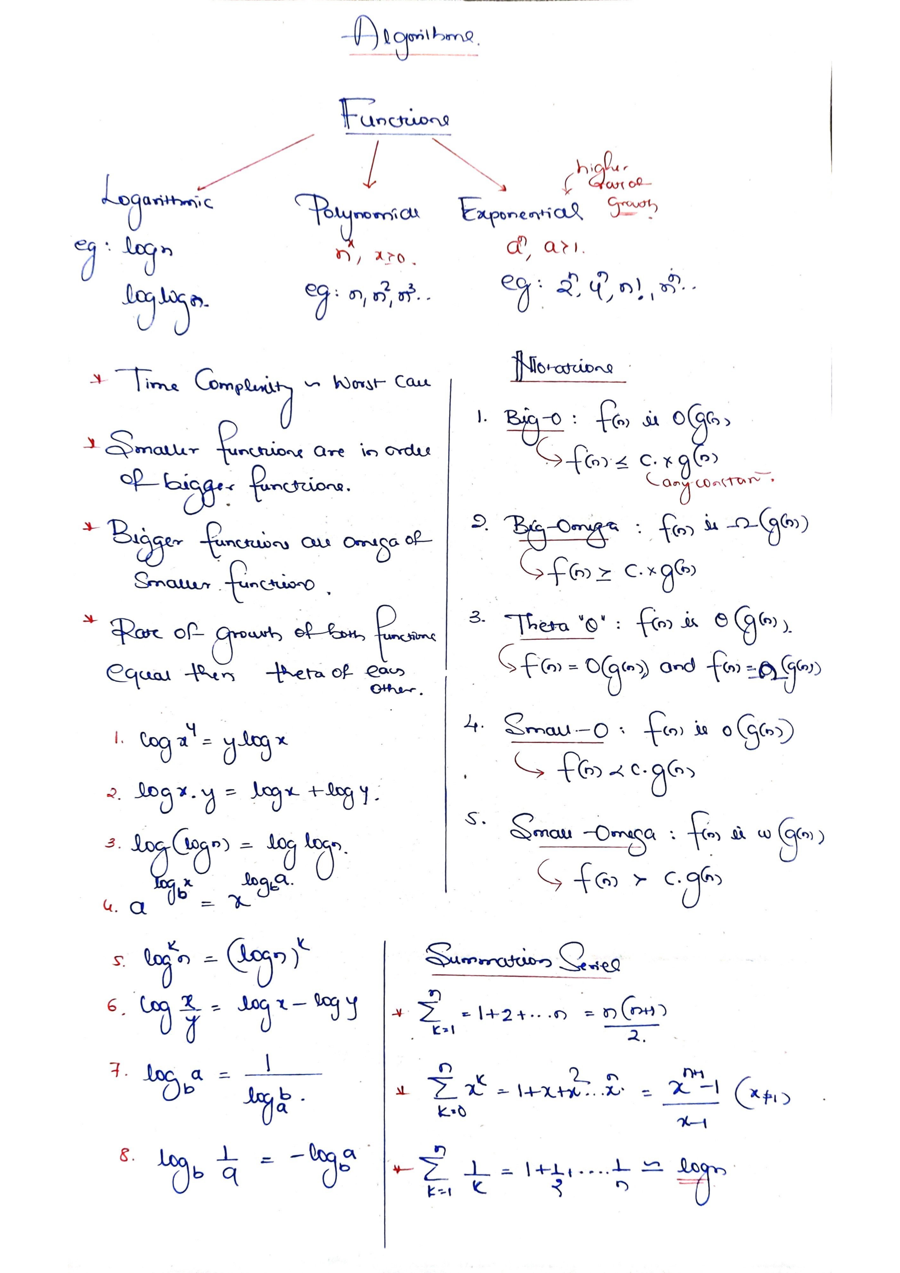 Algorithms.
Functions
higher
rate of
growth
Logarithmic Polynomial Exponential
nˣ, x>0. aⁿ, a>1.
eg: logn eg: n, n², n³.. eg: 2ⁿ, 4ⁿ, n!, nⁿ..
loglogn.
* Time Complexity ~ Worst Case
* Smaller functions are in order
of bigger functions.
* Bigger functions are omega of
Smaller functions.
* Rate of growth of both functions
equal then theta of each
other.
Notations
1. Big-O : f(n) is O(g(n))
↳ f(n) ≤ c.×g(n)
(any constant.
2. Big-Omega : f(n) is Ω(g(n))
↳ f(n) ≥ c.×g(n)
3. Theta "Θ" : f(n) is Θ(g(n)).
↳ f(n) = O(g(n)) and f(n) = Ω(g(n))
4. Small-O : f(n) is o(g(n))
↳ f(n) < c.g(n)
5. Small-Omega : f(n) is ω(g(n))
↳ f(n) > c.g(n)
1. log x^y = y log x
2. log x.y = log x + log y.
3. log(logn) = log logn.
4. a^(log_b x) = x^(log_b a).
5. log^k n = (logn)^k
6. log x/y = log x − log y
7. log_b a = 1/log_a b.
8. log_b 1/a = −log_b a
Summation Series
* ∑_{k=1}^{n} = 1+2+...n = n(n+1)/2.
* ∑_{k=0}^{n} x^k = 1+x+x²...xⁿ = (x^{n+1}−1)/(x−1) (x≠1)
* ∑_{k=1}^{n} 1/k = 1+1/2,....1/n ≃ logn